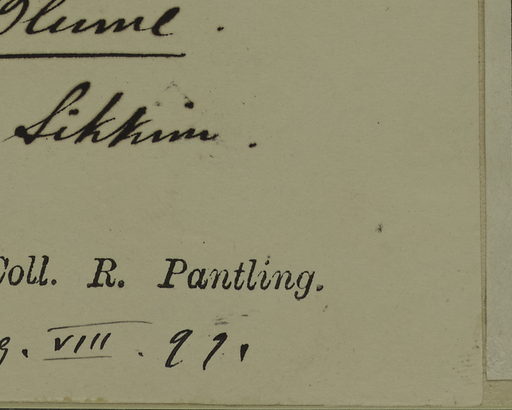 Blume.
Sikkim.
Coll. R. Pantling.
g. VIII. 97.